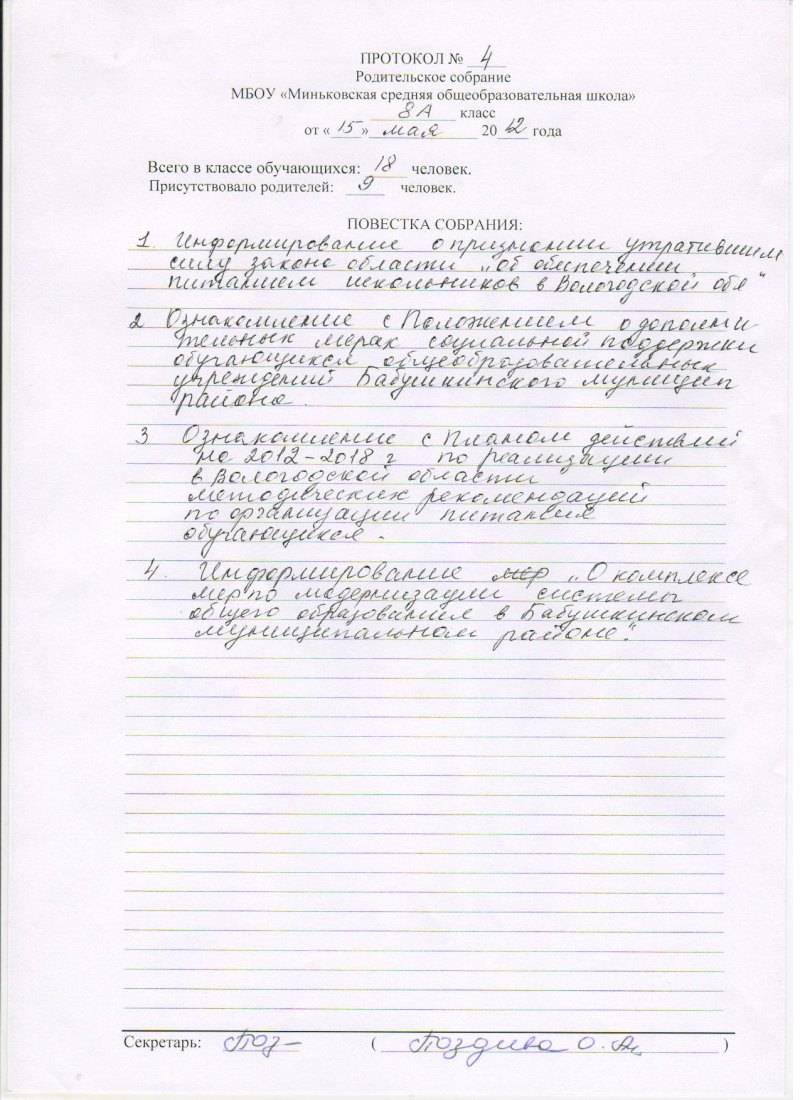 ПРОТОКОЛ № 4
Родительское собрание
МБОУ «Миньковская средняя общеобразовательная школа»
8А класс
от «15» мая 2012 года
Всего в классе обучающихся: 18 человек.
Присутствовало родителей: 9 человек.
ПОВЕСТКА СОБРАНИЯ:
1. Информирование о признании утратившим
силу закона области „об обеспечении
питанием школьников в Вологодской обл"
2 Ознакомление с Положением о дополни
тельных мерах социальной поддержки
обучающихся общеобразовательных
учреждений Бабушкинского муницип
района.
3 Ознакомление с Планом действий
на 2012-2018 г по реализации
в Вологодской области
методических рекомендаций
по организации питания
обучающихся.
4. Информирование мер „О комплексе
мер по модернизации системы
общего образования в Бабушкинском
муниципальном районе".
Секретарь: Поз- ( О. )